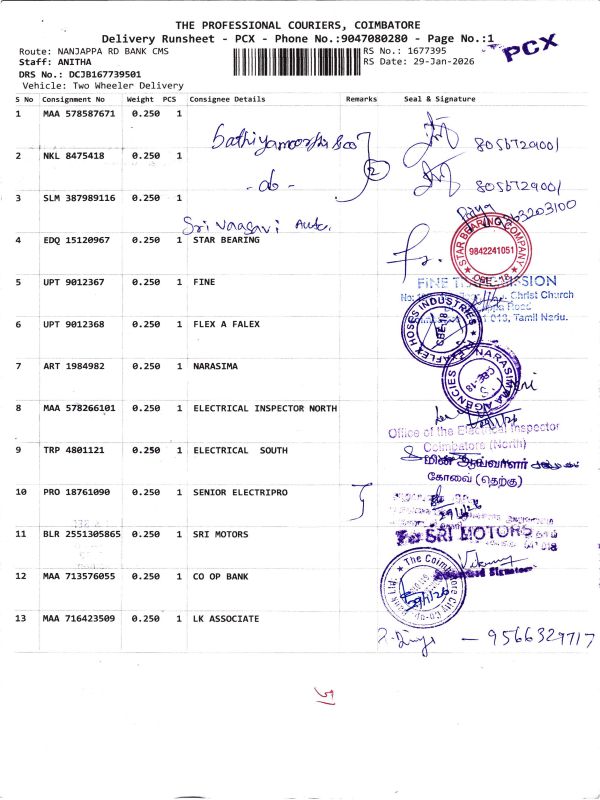 THE PROFESSIONAL COURIERS, COIMBATORE
Delivery Runsheet - PCX - Phone No.:9047080280 - Page No.:1
PCX
Route: NANJAPPA RD BANK CMS
RS No.: 1677395
Staff: ANITHA
RS Date: 29-Jan-2026
DRS No.: DCJB167739501
Vehicle: Two Wheeler Delivery
S No Consignment No Weight PCS Consignee Details Remarks Seal & Signature
1 MAA 578587671 0.250 1
8056729001
2 NKL 8475418 0.250 1
- do - 2
8056729001
3 SLM 387989116 0.250 1
Sri Vaagavi Auto.
4 EDQ 15120967 0.250 1 STAR BEARING
STAR BEARING COMPANY
9842241051
CBE-18
5 UPT 9012367 0.250 1 FINE
Christ Church
Road
013, Tamil Nadu.
6 UPT 9012368 0.250 1 FLEX A FALEX
HOSES INDUSTRIES
CBE-18
7 ART 1984982 0.250 1 NARASIMA
NARASIMHA AGENCIES
CBE-18
8 MAA 578266101 0.250 1 ELECTRICAL INSPECTOR NORTH
Office of the Electrical Inspector
Coimbatore (North)
9 TRP 4801121 0.250 1 ELECTRICAL SOUTH
மின் ஆய்வாளர்
கோவை (தெற்கு)
10 PRO 18761090 0.250 1 SENIOR ELECTRIPRO
29/1/26
11 BLR 2551305865 0.250 1 SRI MOTORS
For SRI MOTORS
018
12 MAA 713576055 0.250 1 CO OP BANK
The Coimbatore City Co-op.
29/1/26
13 MAA 716423509 0.250 1 LK ASSOCIATE
- 9566329717